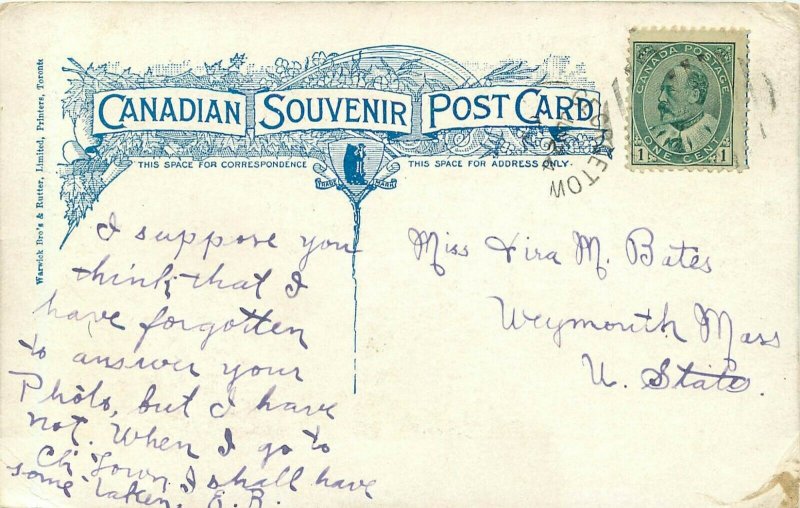 Warwick Bro's & Rutter, Limited, Printers, Toronto
CANADIAN SOUVENIR POST CARD
THIS SPACE FOR CORRESPONDENCE
THIS SPACE FOR ADDRESS ONLY
TRADE MARK
CANADA POSTAGE
ONE CENT
1 1
I suppose you
think that I
have forgotten
to answer your
Photo, but I have
not. When I go to
Ch'Town I shall have
some taken. E. R.
Miss M. Bates
Weymouth Mass
U. States.